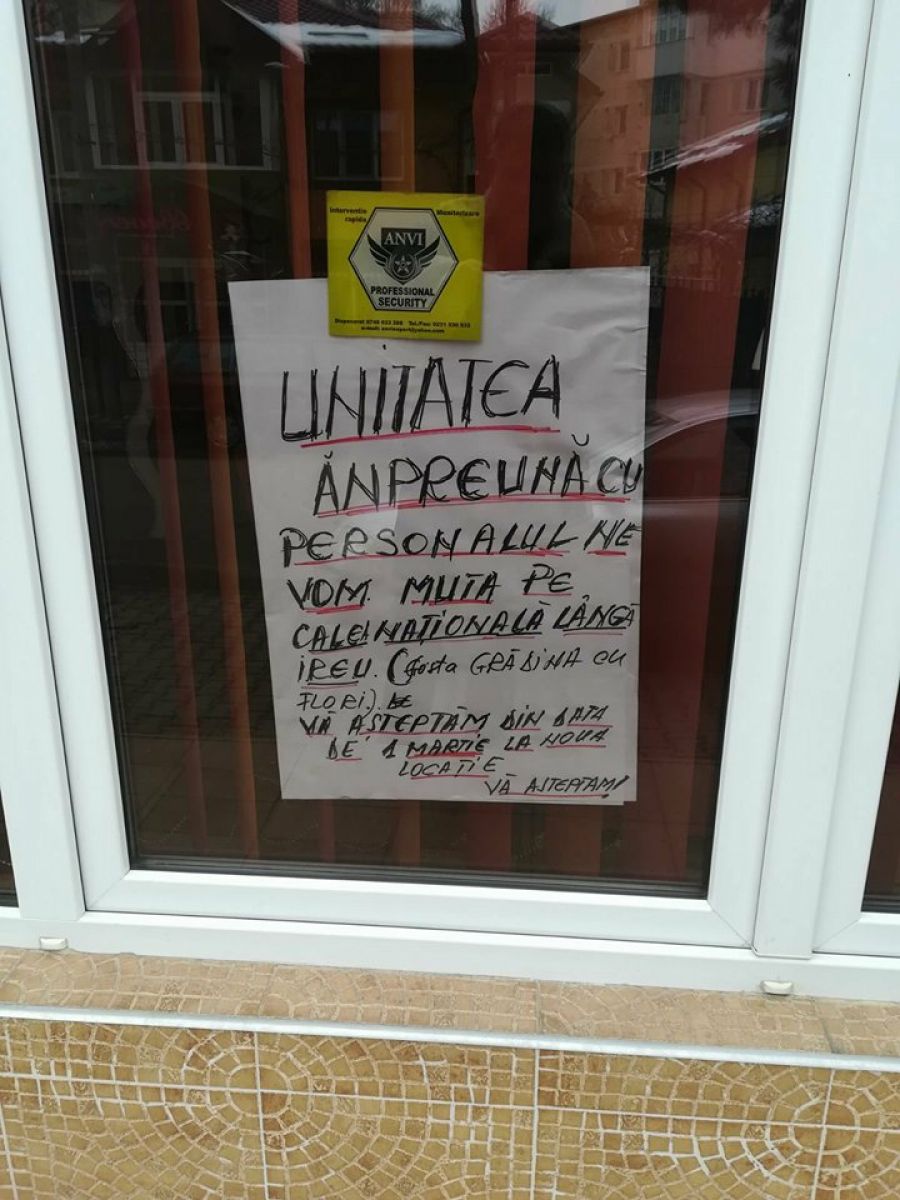 Interventie Monitorizare
rapida
ANVI
PROFESSIONAL
SECURITY
UNITATEA
ĂNPREUNĂ CU
PERSONALUL NE
VOM MUTA PE
CALEA NAȚIONALĂ LÂNGĂ
IREU. (fosta GRĂDINA CU
FLORI).
VĂ AȘTEPTĂM DIN DATA
DE 1 MARTIE LA NOUA
LOCAȚIE
VĂ AȘTEPTAM!